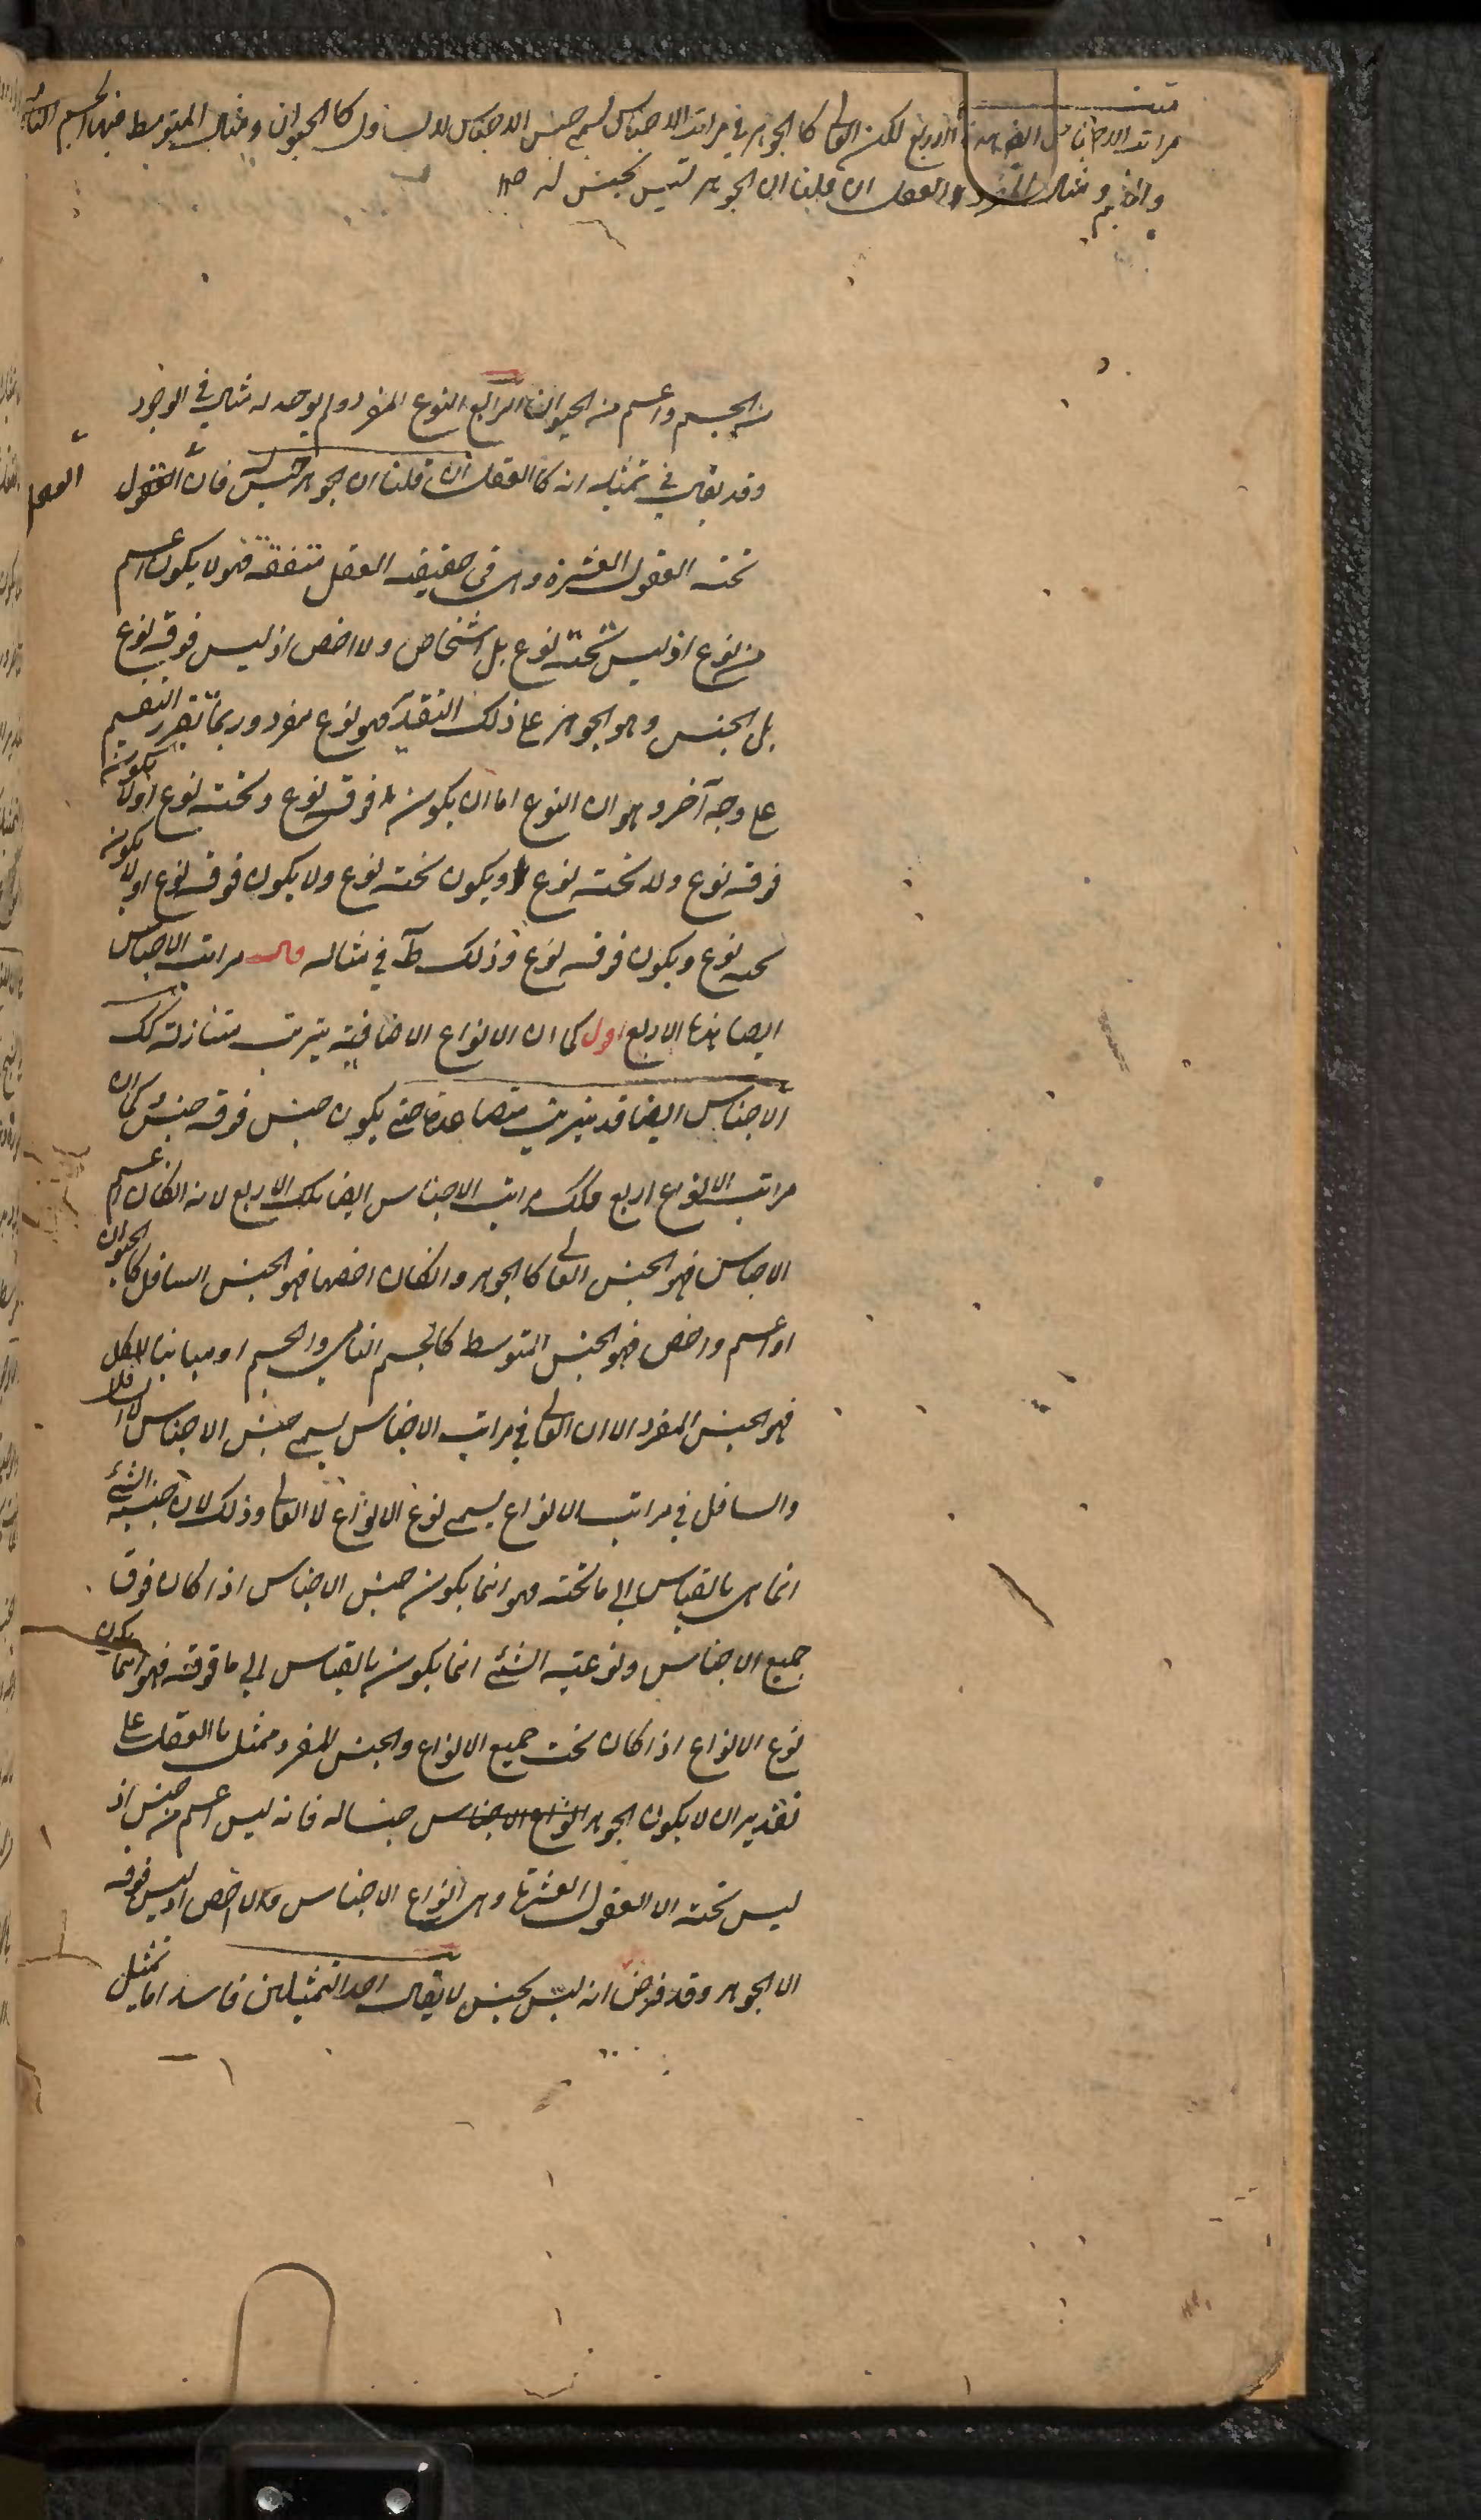 متن
مراتب الاجناس ايضا هذه الاربع لكن العالى كالجوهر فى مراتب الاجناس يسمى جنس الاجناس لا السافل كالحيوان ومثال المتوسط فيها الجسم النامى
والجسم ومثال المفرد العقل ان قلنا ان الجوهر ليس بجنس له
من الجسم واعم من الحيوان الرابع النوع المفرد ولم يوجد له مثال فى الوجود
وقد يقال فى تمثيله انه كالعقل ان قلنا ان الجوهر جنس له فان العقل
تحته العقول العشرة وهى فى حقيقة العقل متفقة فهو لا يكون اعم
من نوع اذ ليس تحته نوع بل اشخاص ولا اخص اذ ليس فوقه نوع
بل الجنس وهو الجوهر على ذلك التقدير فهو نوع مفرد وربما يقرر التقسيم
على وجه آخر وهو ان النوع اما ان يكون فوقه نوع وتحته نوع اولا يكون
فوقه نوع ولا تحته نوع او يكون تحته نوع ولا يكون فوقه نوع اولا يكون
تحته نوع ويكون فوقه نوع وذلك ظ فى مثاله قال مراتب الاجناس
ايضا هذه الاربع اقول كما ان الانواع الاضافية يترتب متنازلة كك
الاجناس ايضا قد يترتب متصاعدة حتى يكون جنس فوقه جنس وكما ان
مراتب الانواع اربع فكك مراتب الاجناس ايضا تلك الاربع لانه ان كان اعم
الاجناس فهو الجنس العالى كالجوهر وان كان اخصها فهو الجنس السافل كالحيوان
او اعم واخص فهو الجنس المتوسط كالجسم النامى والجسم او مباينا للكل
فهو الجنس المفرد الا ان العالى فى مراتب الاجناس يسمى جنس الاجناس لا السافل
والسافل فى مراتب الانواع يسمى نوع الانواع لا العالى وذلك لان جنسية الشئ
انما هى بالقياس الى ما تحته فهو انما يكون جنس الاجناس اذا كان فوق
جميع الاجناس ونوعية الشئ انما يكون بالقياس الى ما فوقه فهو انما يكون
نوع الانواع اذا كان تحت جميع الانواع والجنس المفرد ممثل بالعقل على
تقدير ان لا يكون الجوهر جنسا له فانه ليس اعم من جنس اذ
ليس تحته الا العقول العشرة وهى انواع لا اجناس ولا اخص اذ ليس فوقه
الا الجوهر وقد فرض انه ليس بجنس لا يقال احد التمثيلين فاسد اما تمثيل